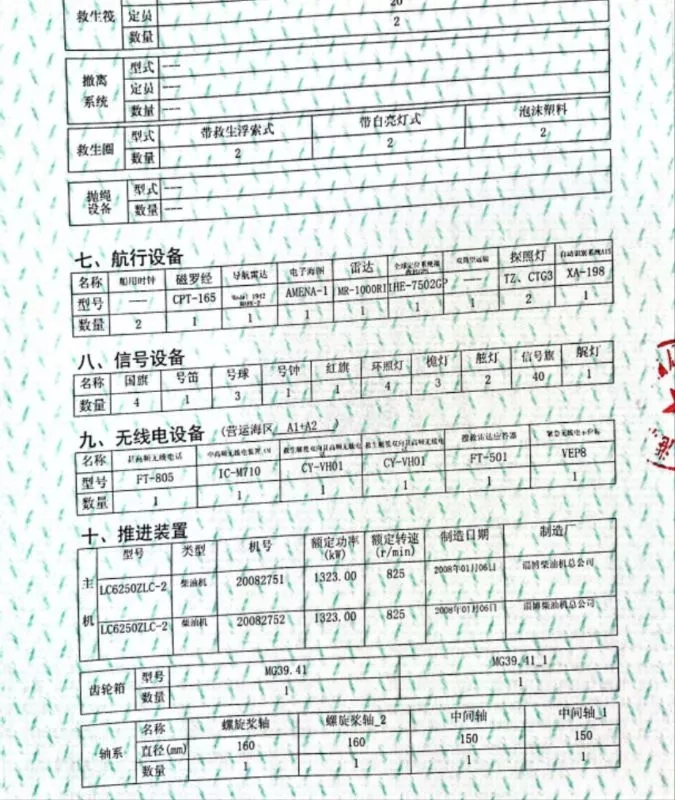 20
救生筏 定员 2
数量
撤离系统 型式 ---
定员 ---
数量 ---
救生圈 型式 带救生浮索式 带自亮灯式 泡沫塑料
数量 2 2 2
抛绳设备 型式 ---
数量 ---
七、航行设备
名称 船用时钟 磁罗经 导航雷达 电子海图 雷达 探照灯
型号 --- CPT-165 AMENA-1 MR-1000RII HE-7502GP --- TZ、CTG3 XA-198
数量 2 1 1 1 1 1 1 2 1
八、信号设备
名称 国旗 号笛 号球 号钟 红旗 环照灯 桅灯 舷灯 信号旗 艉灯
数量 4 1 3 1 1 4 3 2 40 1
九、无线电设备 (营运海区 A1+A2 )
名称 甚高频无线电话 搜救雷达应答器
型号 FT-805 IC-M710 CY-VH01 CY-VH01 FT-501 VEP8
数量 1 1 1 1 1 1
十、推进装置
型号 类型 机号 额定功率(kW) 额定转速(r/min) 制造日期 制造厂
主机 LC6250ZLC-2 柴油机 20082751 1323.00 825 2008年01月06日 淄博柴油机总公司
LC6250ZLC-2 柴油机 20082752 1323.00 825 2008年01月06日 淄博柴油机总公司
齿轮箱 型号 MG39.41 MG39.41_1
数量 1 1
轴系 名称 螺旋桨轴 螺旋桨轴_2 中间轴 中间轴_1
直径(mm) 160 160 150 150
数量 1 1 1 1